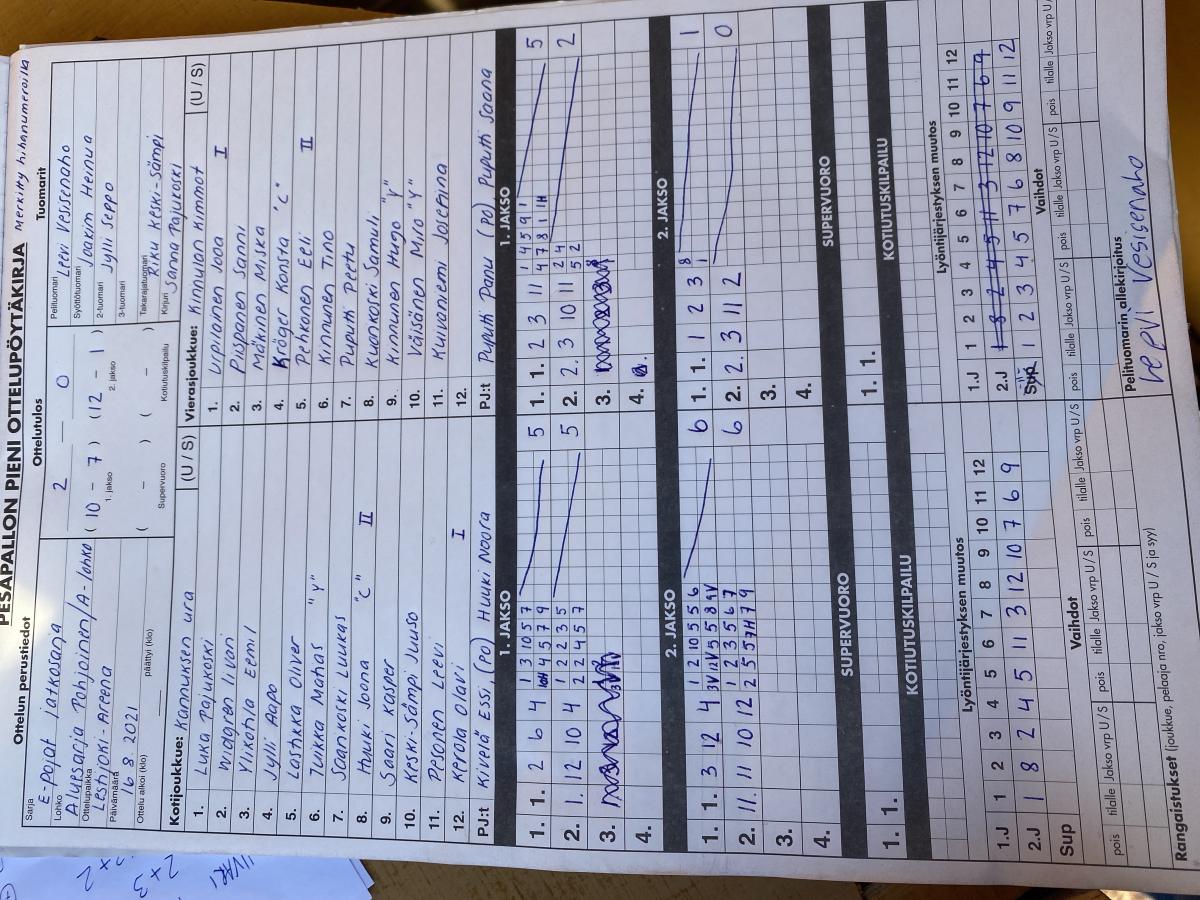 PESÄPALLON PIENI OTTELUPÖYTÄKIRJA MERKITTY hihanumeroilla
Ottelun perustiedot
Ottelutulos
Tuomarit
Sarja
E-pojat jatkosarja
Lohko
Aluesarja Pohjoinen/A-lohko
Ottelupaikka
Lestijoki-Areena
Päivämäärä
16 8. 2021
Ottelu alkoi (klo)
päättyi (klo)
2 — 0
( 10 – 7 ) ( 12 – 1 )
1. jakso 2. jakso
( – ) ( – )
Supervuoro Kotiutuskilpailu
Pelituomari
Leevi Vesisenaho
Syöttötuomari
Joakim Hemua
2-tuomari
Jylli Seppo
3-tuomari
Takarajatuomari
Riku Keski-Sämpi
Kirjuri
Sanna Pajukoski
Kotijoukkue: Kannuksen ura (U / S)
1. Luka Pajukoski
2. Widgren Iivari
3. Ylikotila Eemil
4. Jylli Aapo
5. Loshkka Oliver
6. Tuikka Mahas "Y"
7. Saarikoski Luukas
8. Huuki Joona "C" II
9. Saari Kasper
10. Keski-Sämpi Juuso
11. Pesonen Leevi
12. Kerola Olavi I
PJ:t Kivelä Essi, (PO) Huuki Noora
Vierasjoukkue: Kinnulan Kimmat (U / S)
1. Urpilainen Joaa I
2. Piispanen Sanni
3. Mäkinen Miska
4. Kröger Konsta "C"
5. Pehkonen Eeli II
6. Kinnunen Tino
7. Puputti Peetu
8. Kuonkoski Samuli
9. Kinnunen Hugo "Y"
10. Väisänen Milo "Y"
11. Muivoniemi Joreinna
12.
PJ:t Puputti Panu (PO) Puputti Saana
1. JAKSO
1. 1. 2 6 4 1 3 10 5 7 5
4 5 7 9
2. 1. 12 10 4 1 2 2 3 5 5
2 2 4 5 7
3.
4.
1. JAKSO
1. 1. 2 3 11 1 4 5 9 1 5
4 7 8 1 1H
2. 2. 3 10 11 2 4 2
5 2
3.
4.
2. JAKSO
1. 1. 3 12 4 1 2 10 5 5 6 6
3V 12V 5 5 8 9V
2. 11. 11 10 12 1 2 3 5 6 7 6
2 5 5 7H 7 9
3.
4.
2. JAKSO
1. 1. 1 2 3 8 1
1
2. 2. 3 11 2 0
3.
4.
SUPERVUORO
1. 1.
SUPERVUORO
1. 1.
KOTIUTUSKILPAILU
KOTIUTUSKILPAILU
Lyöntijärjestyksen muutos
1.J 1 2 3 4 5 6 7 8 9 10 11 12
2.J 1 8 2 4 5 11 3 12 10 7 6 9
Sup
Vaihdot
pois tilalle Jakso vrp U / S pois tilalle Jakso vrp U / S pois tilalle Jakso vrp U / S
Lyöntijärjestyksen muutos
1.J 1 2 3 4 5 6 7 8 9 10 11 12
2.J 1 8 2 4 5 11 3 12 10 7 6 9
Sup 1 2 3 4 5 7 6 8 10 9 11 12
Vaihdot
pois tilalle Jakso vrp U / S pois tilalle Jakso vrp U / S pois tilalle Jakso vrp U
Rangaistukset (joukkue, pelaaja nro, jakso vrp U / S ja syy)
Pelituomarin allekirjoitus
Leevi Vesisenaho
2×2
2×3